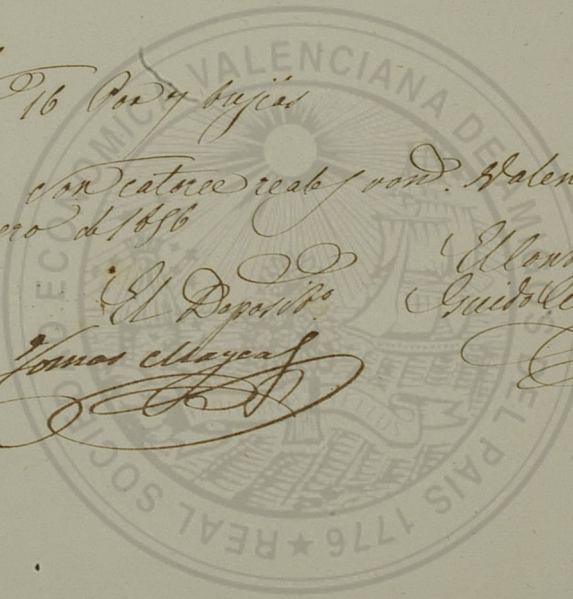 16 Por 7 bujias
Son catorce reales von. Valen
ero de 1856
El Deposito.
Guido
Tomas Mayca
REAL SOCIEDAD ECONOMICA VALENCIANA DE AMIGOS DEL PAIS 1776